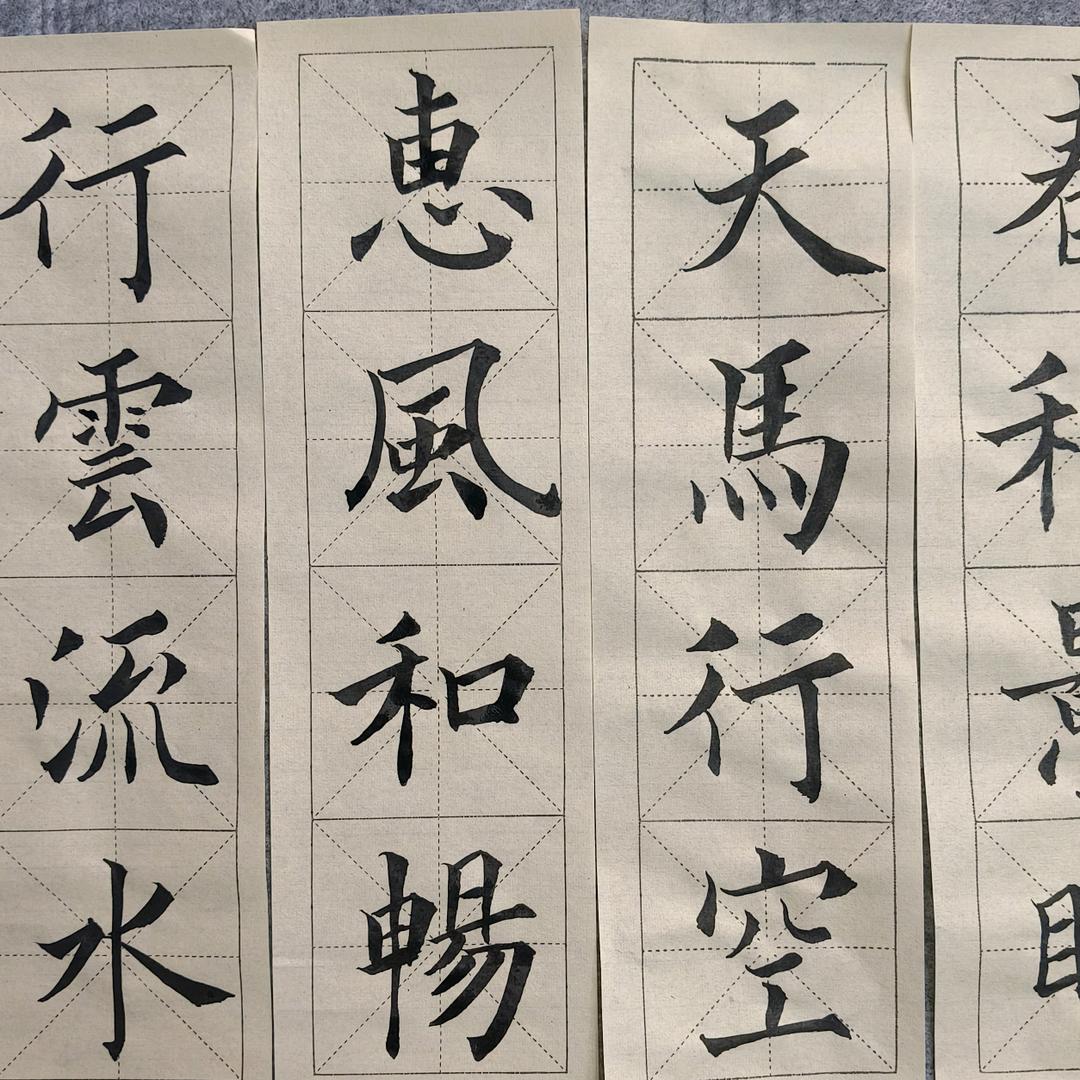 天馬行空
恵風和暢
行雲流水